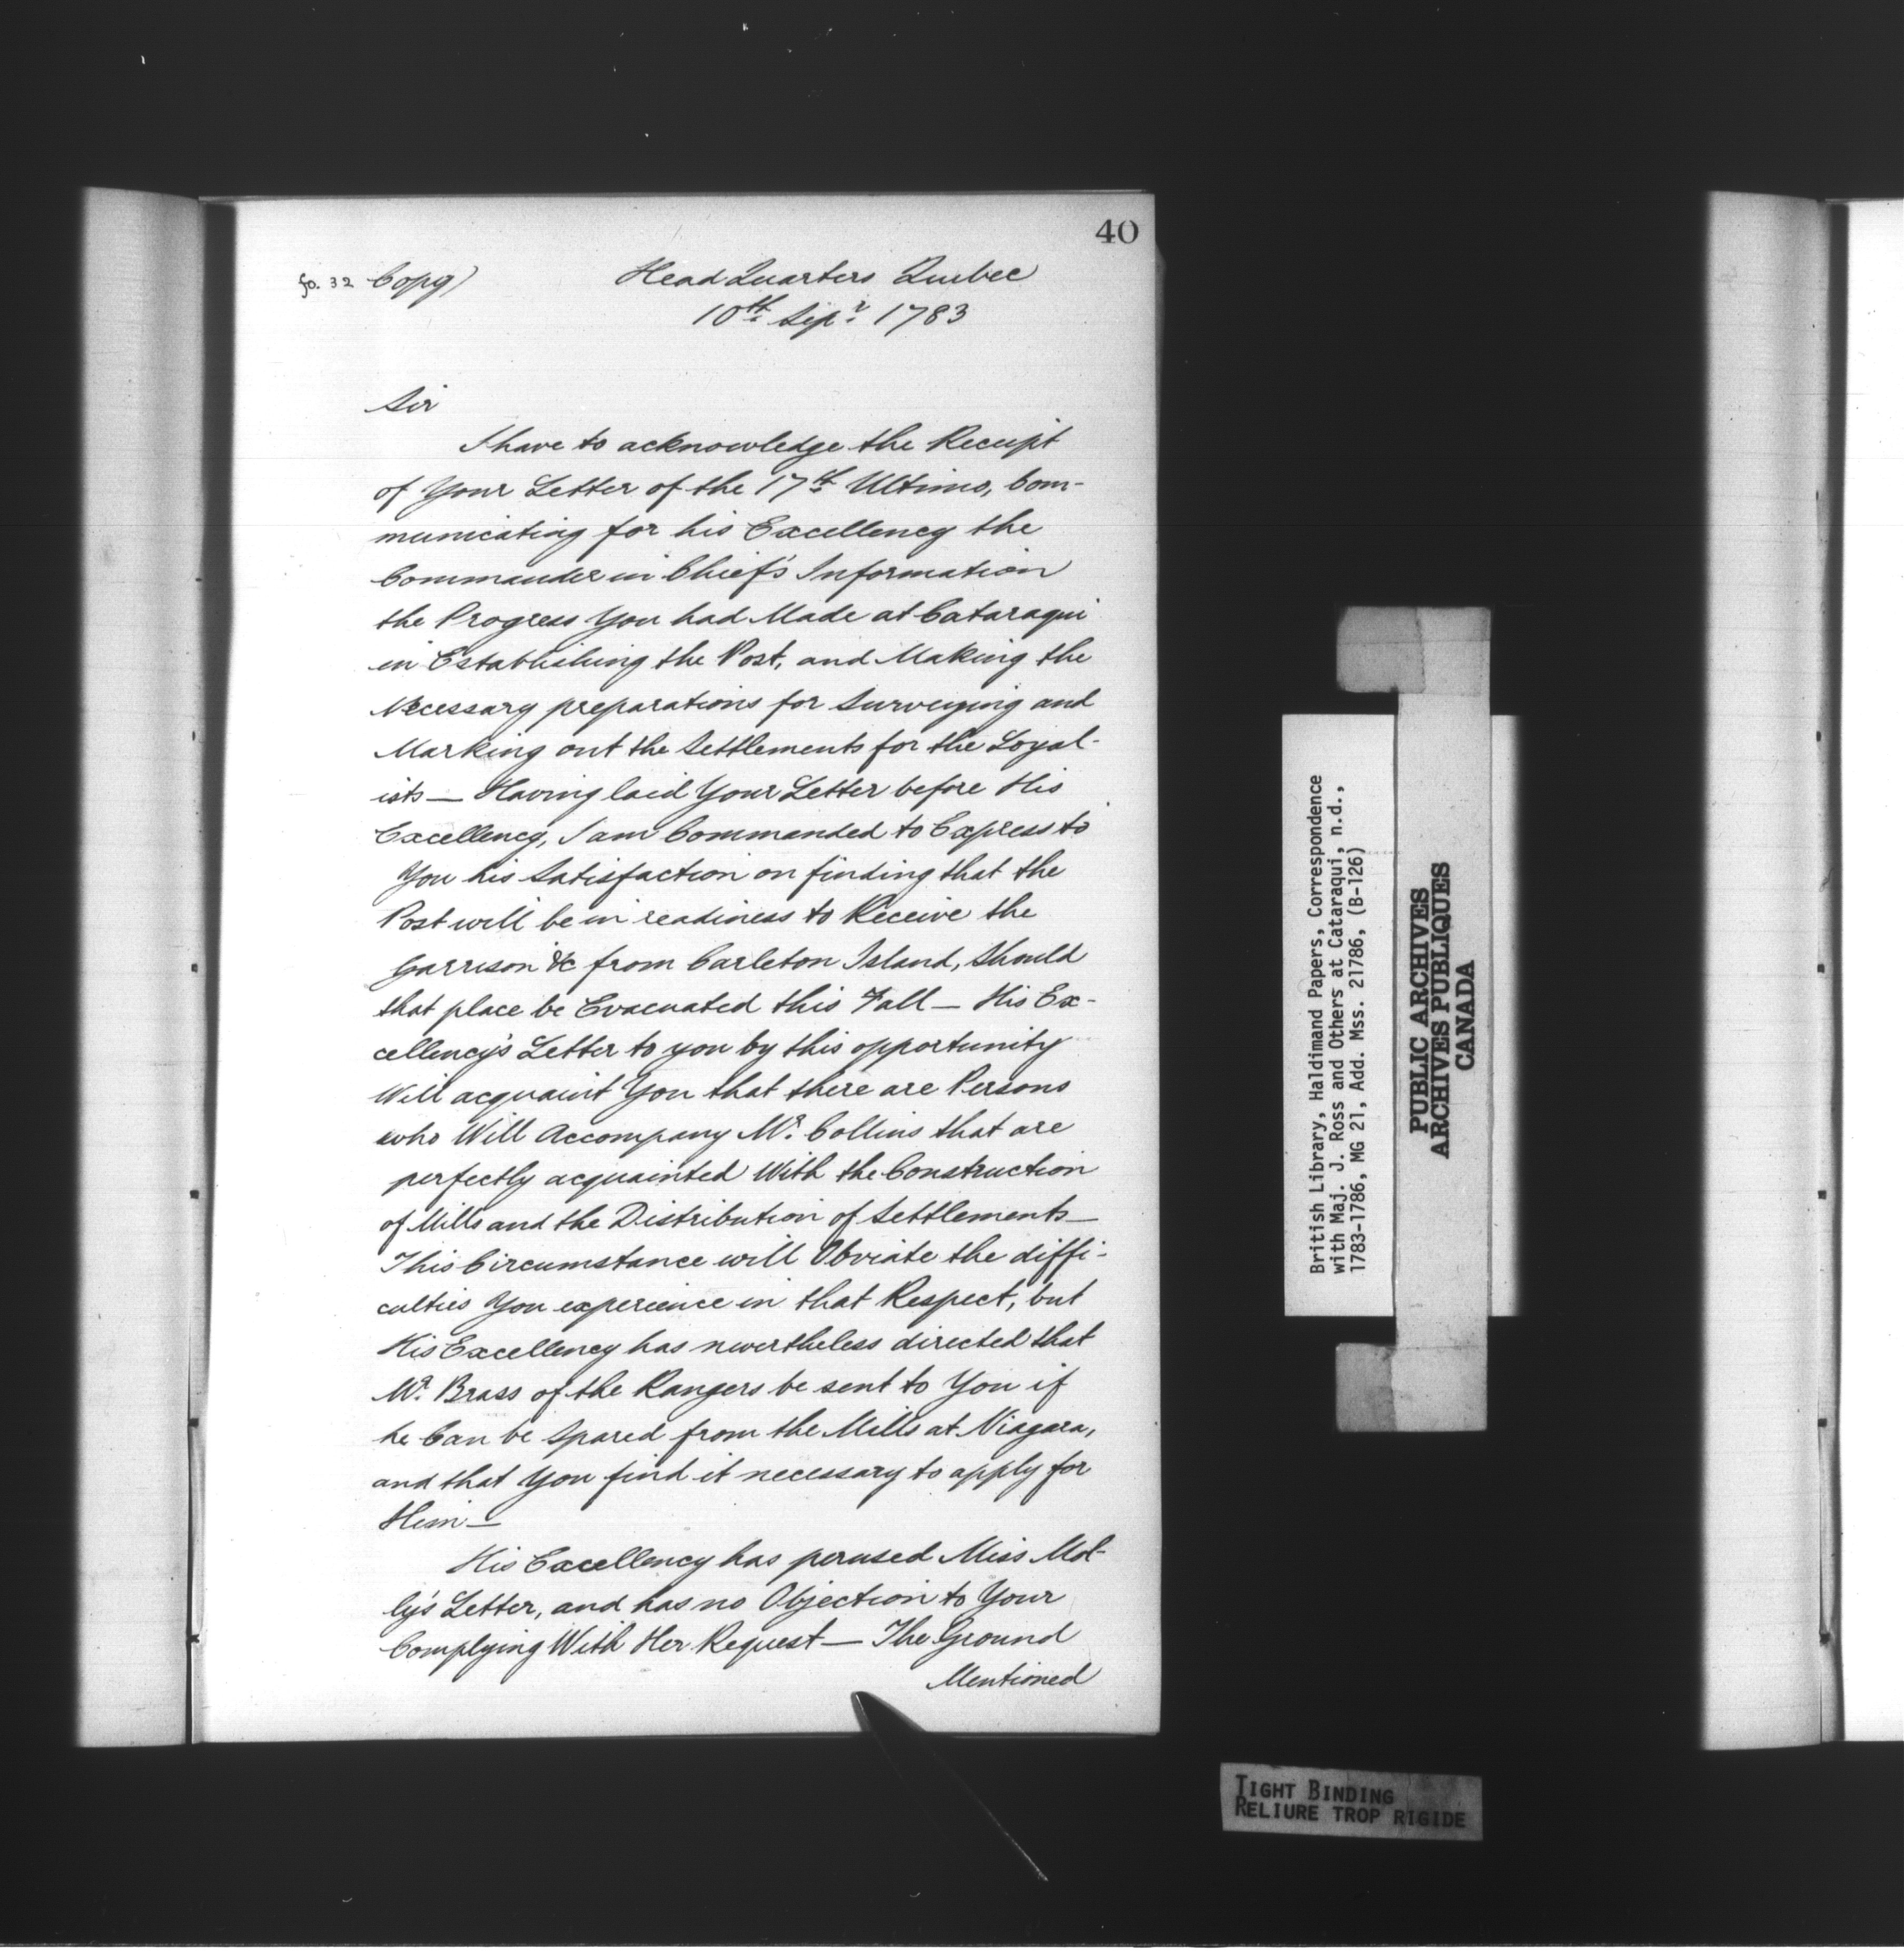 40
fo. 32 Copy) Head Quarters Quebec
10th Sepr 1783
Sir
I have to acknowledge the Receipt
of Your Letter of the 17th Ultimo, Com-
municating for his Excellency the
Commander in Chief's Information
the Progress You had Made at Cataraqui
in Establishing the Post, and Making the
Necessary preparations for Surveying and
Marking out the Settlements for the Loyal-
ists — Having laid Your Letter before His
Excellency, I am Commanded to Express to
You his Satisfaction on finding that the
Post will be in readiness to Receive the
Garrison &c from Carleton Island, Should
that place be Evacuated this Fall — His Ex-
cellency's Letter to you by this opportunity
Will acquaint You that there are Persons
who Will Accompany Mr. Collins that are
perfectly acquainted With the Construction
of Mills and the Distribution of Settlements —
This Circumstance will Obviate the diffi-
culties You experience in that Respect, but
His Excellency has nevertheless directed that
Mr. Brass of the Rangers be sent to You if
he Can be Spared from the Mills at Niagara,
and that You find it necessary to apply for
Him —
His Excellency has perused Miss Mol-
ly's Letter, and has no Objection to Your
Complying With Her Request — The Ground
Mentioned
British Library, Haldimand Papers, Correspondence
with Maj. J. Ross and Others at Cataraqui, n.d.,
1783-1786, MG 21, Add. Mss. 21786, (B-126)
PUBLIC ARCHIVES
ARCHIVES PUBLIQUES
CANADA
TIGHT BINDING
RELIURE TROP RIGIDE